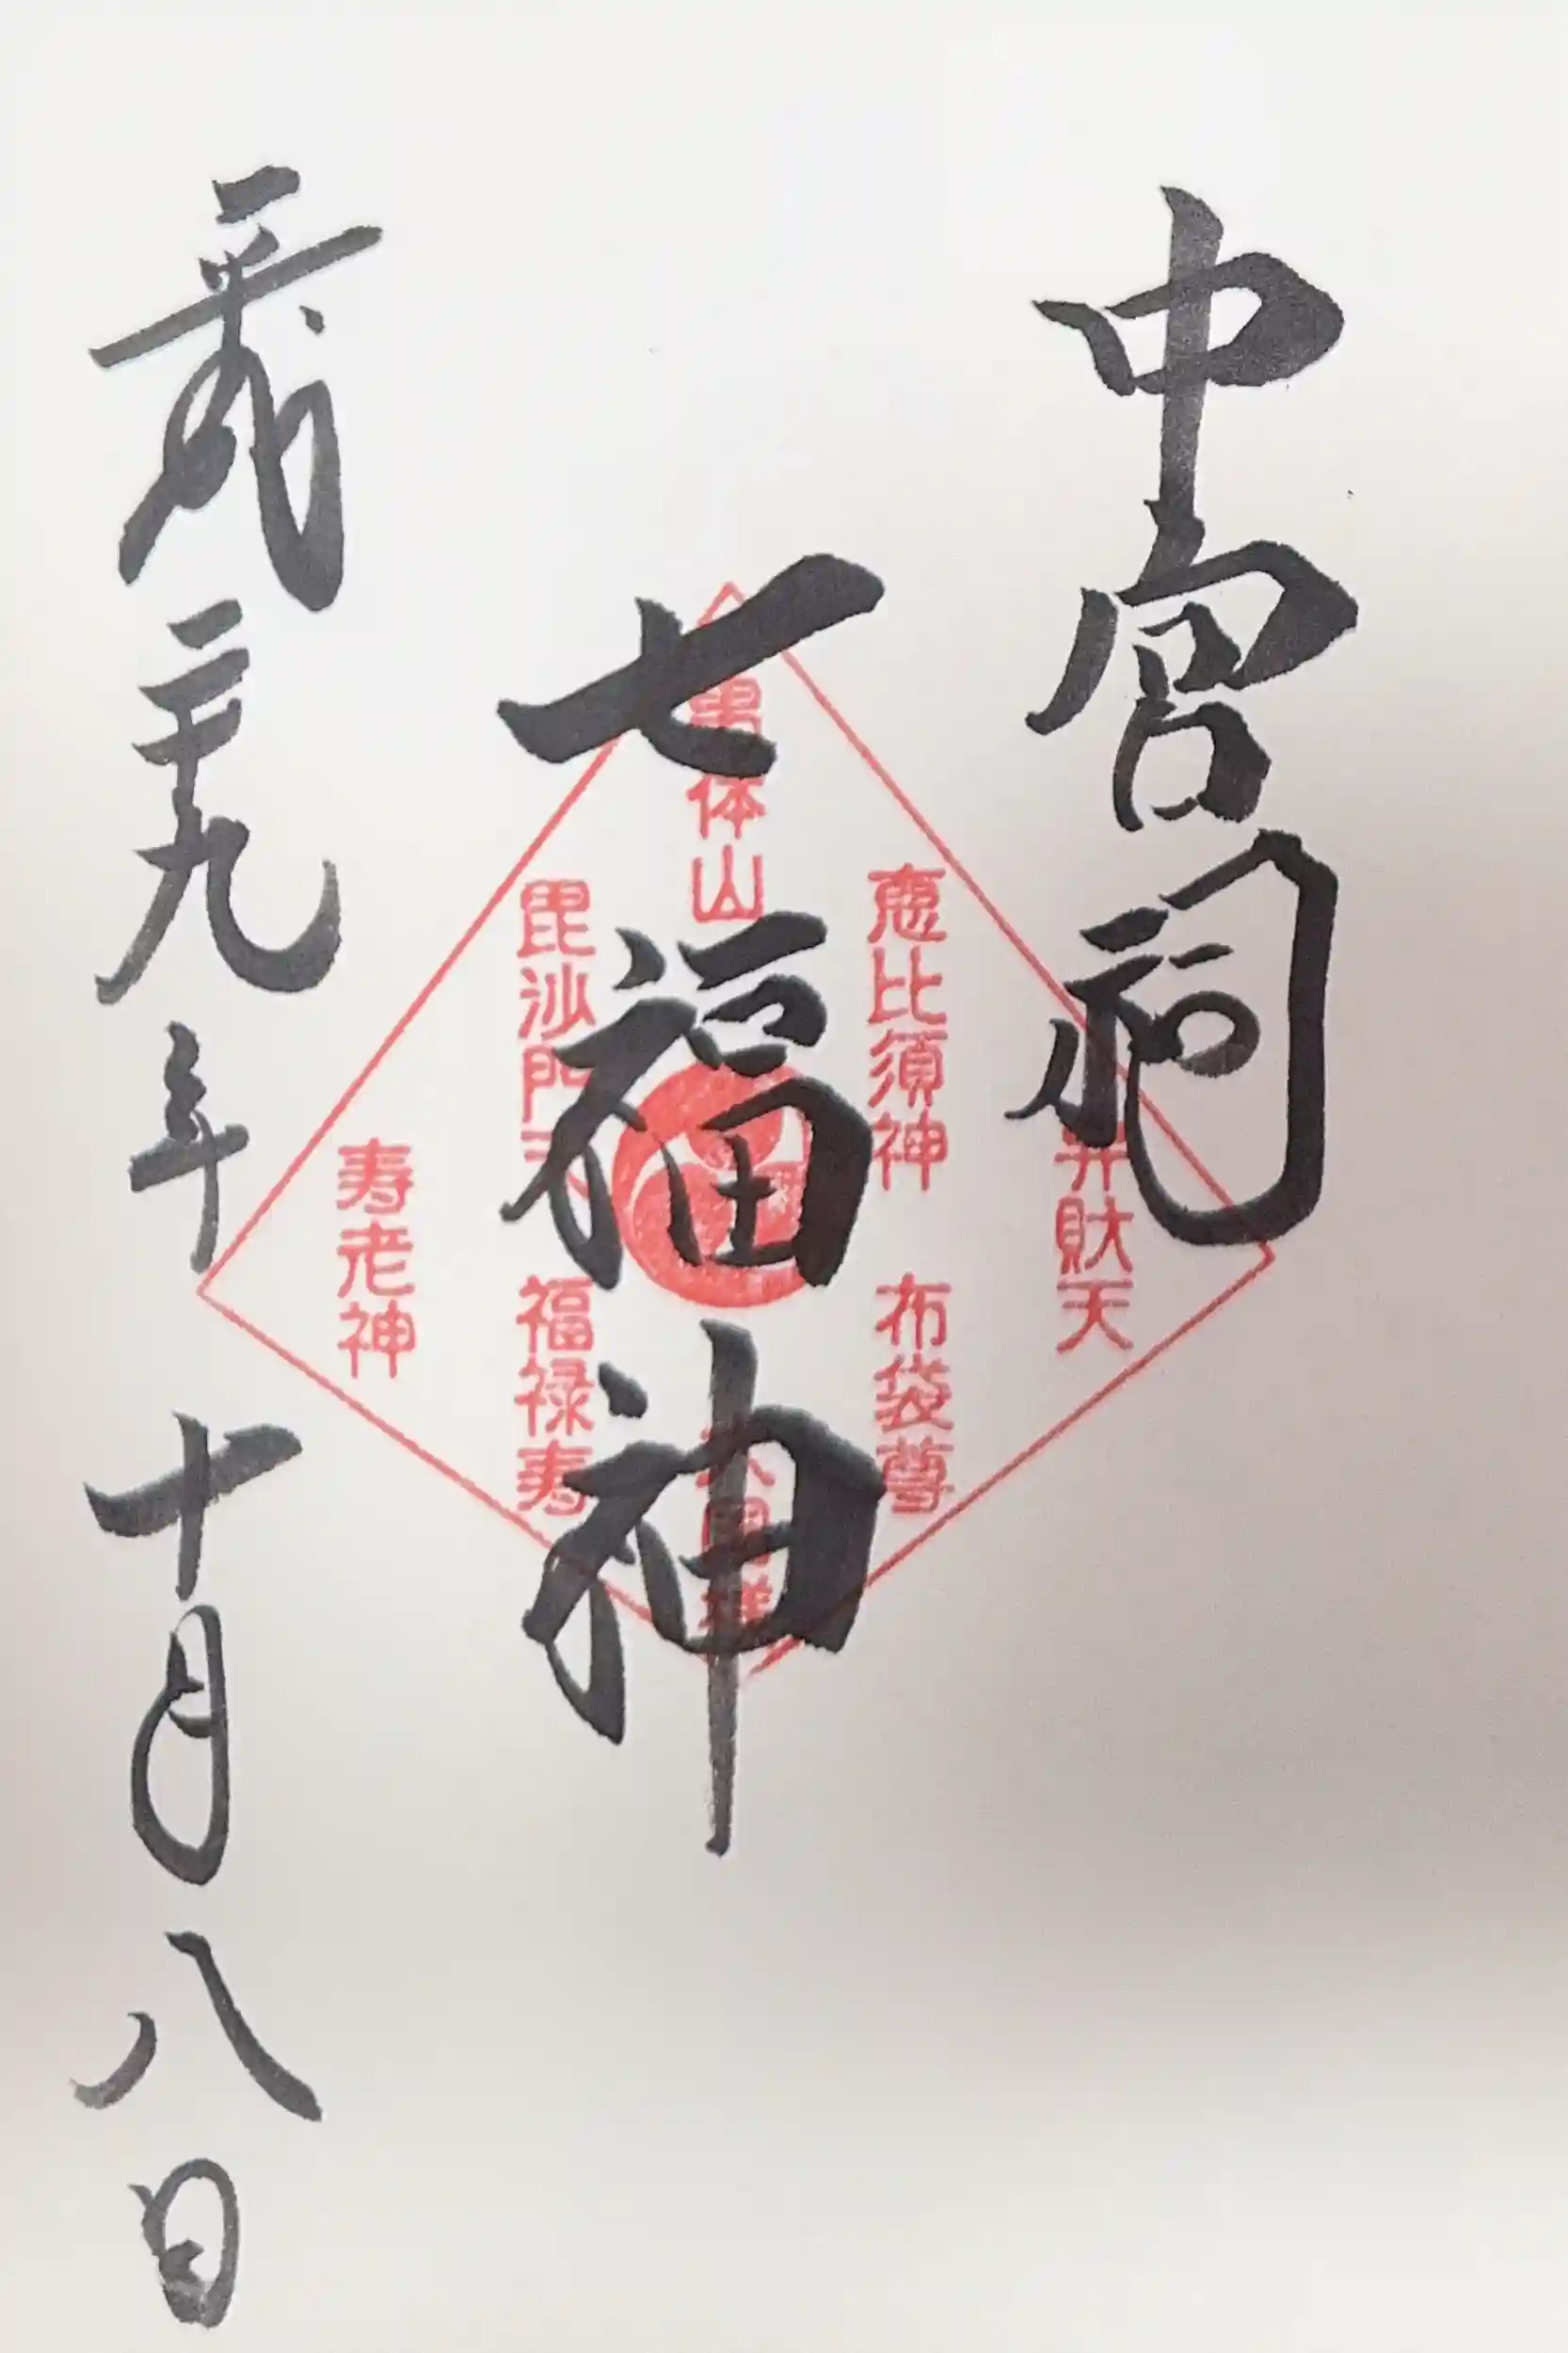 中宮祠
七福神
平成二十九年十月八日
男体山
恵比須神
弁財天
毘沙門天
寿老神
福禄寿
布袋尊
大国様